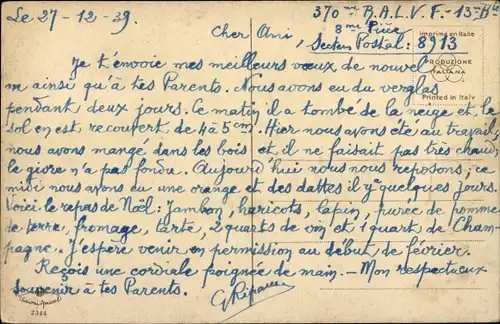 Le 27-12-39.
370me R.A.L.V.F.-13me Bie
8me Pièce
Cher Ami, Secteur Postal: 8913
Imprimé en Italie
Je t'envoie mes meilleurs vœux de nouvel
PRODUZIONE
ITALIANA
an ainsi qu'à tes Parents. Nous avons eu du verglas
Printed in Italy
pendant deux jours. Ce matin il a tombé de la neige et le
sol en est recouvert de 4 à 5 cm. Hier nous avons été au travail,
nous avons mangé dans les bois et il ne faisait pas très chaud;
le givre n'a pas fondu. Aujourd'hui nous nous reposons; ce
midi nous avons eu une orange et des dattes il y a quelques jours.
Voici le repas de Noël: Jambon, haricots, lapin, purée de pomme
de terre, fromage, tarte, 2 quarts de vin et 1 quart de Cham-
pagne. J'espère venir en permission au début de février.
Reçois une cordiale poignée de main. - Mon respectueux
souvenir à tes Parents.
2344